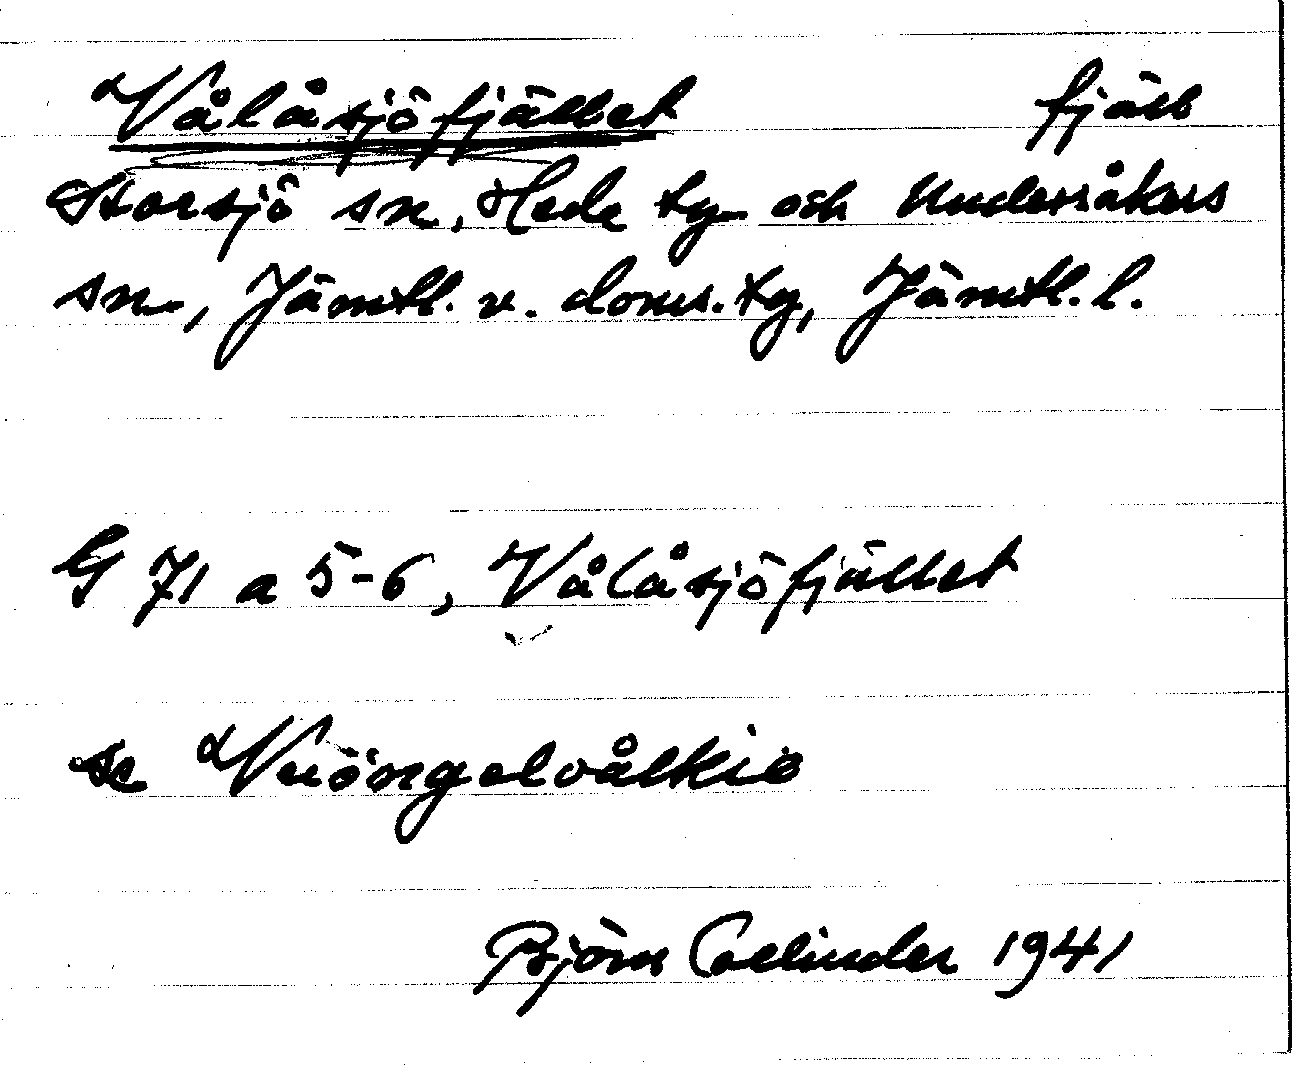 Vålåsjöfjället fjäll
Storsjö sn, Hede tg och Undersåkers
sn, Jämtl. v. doms. tg, Jämtl. l.
G 71 a 5-6, Vålåsjöfjället
se Vuöngelvålkie
Björn Collinder 1941